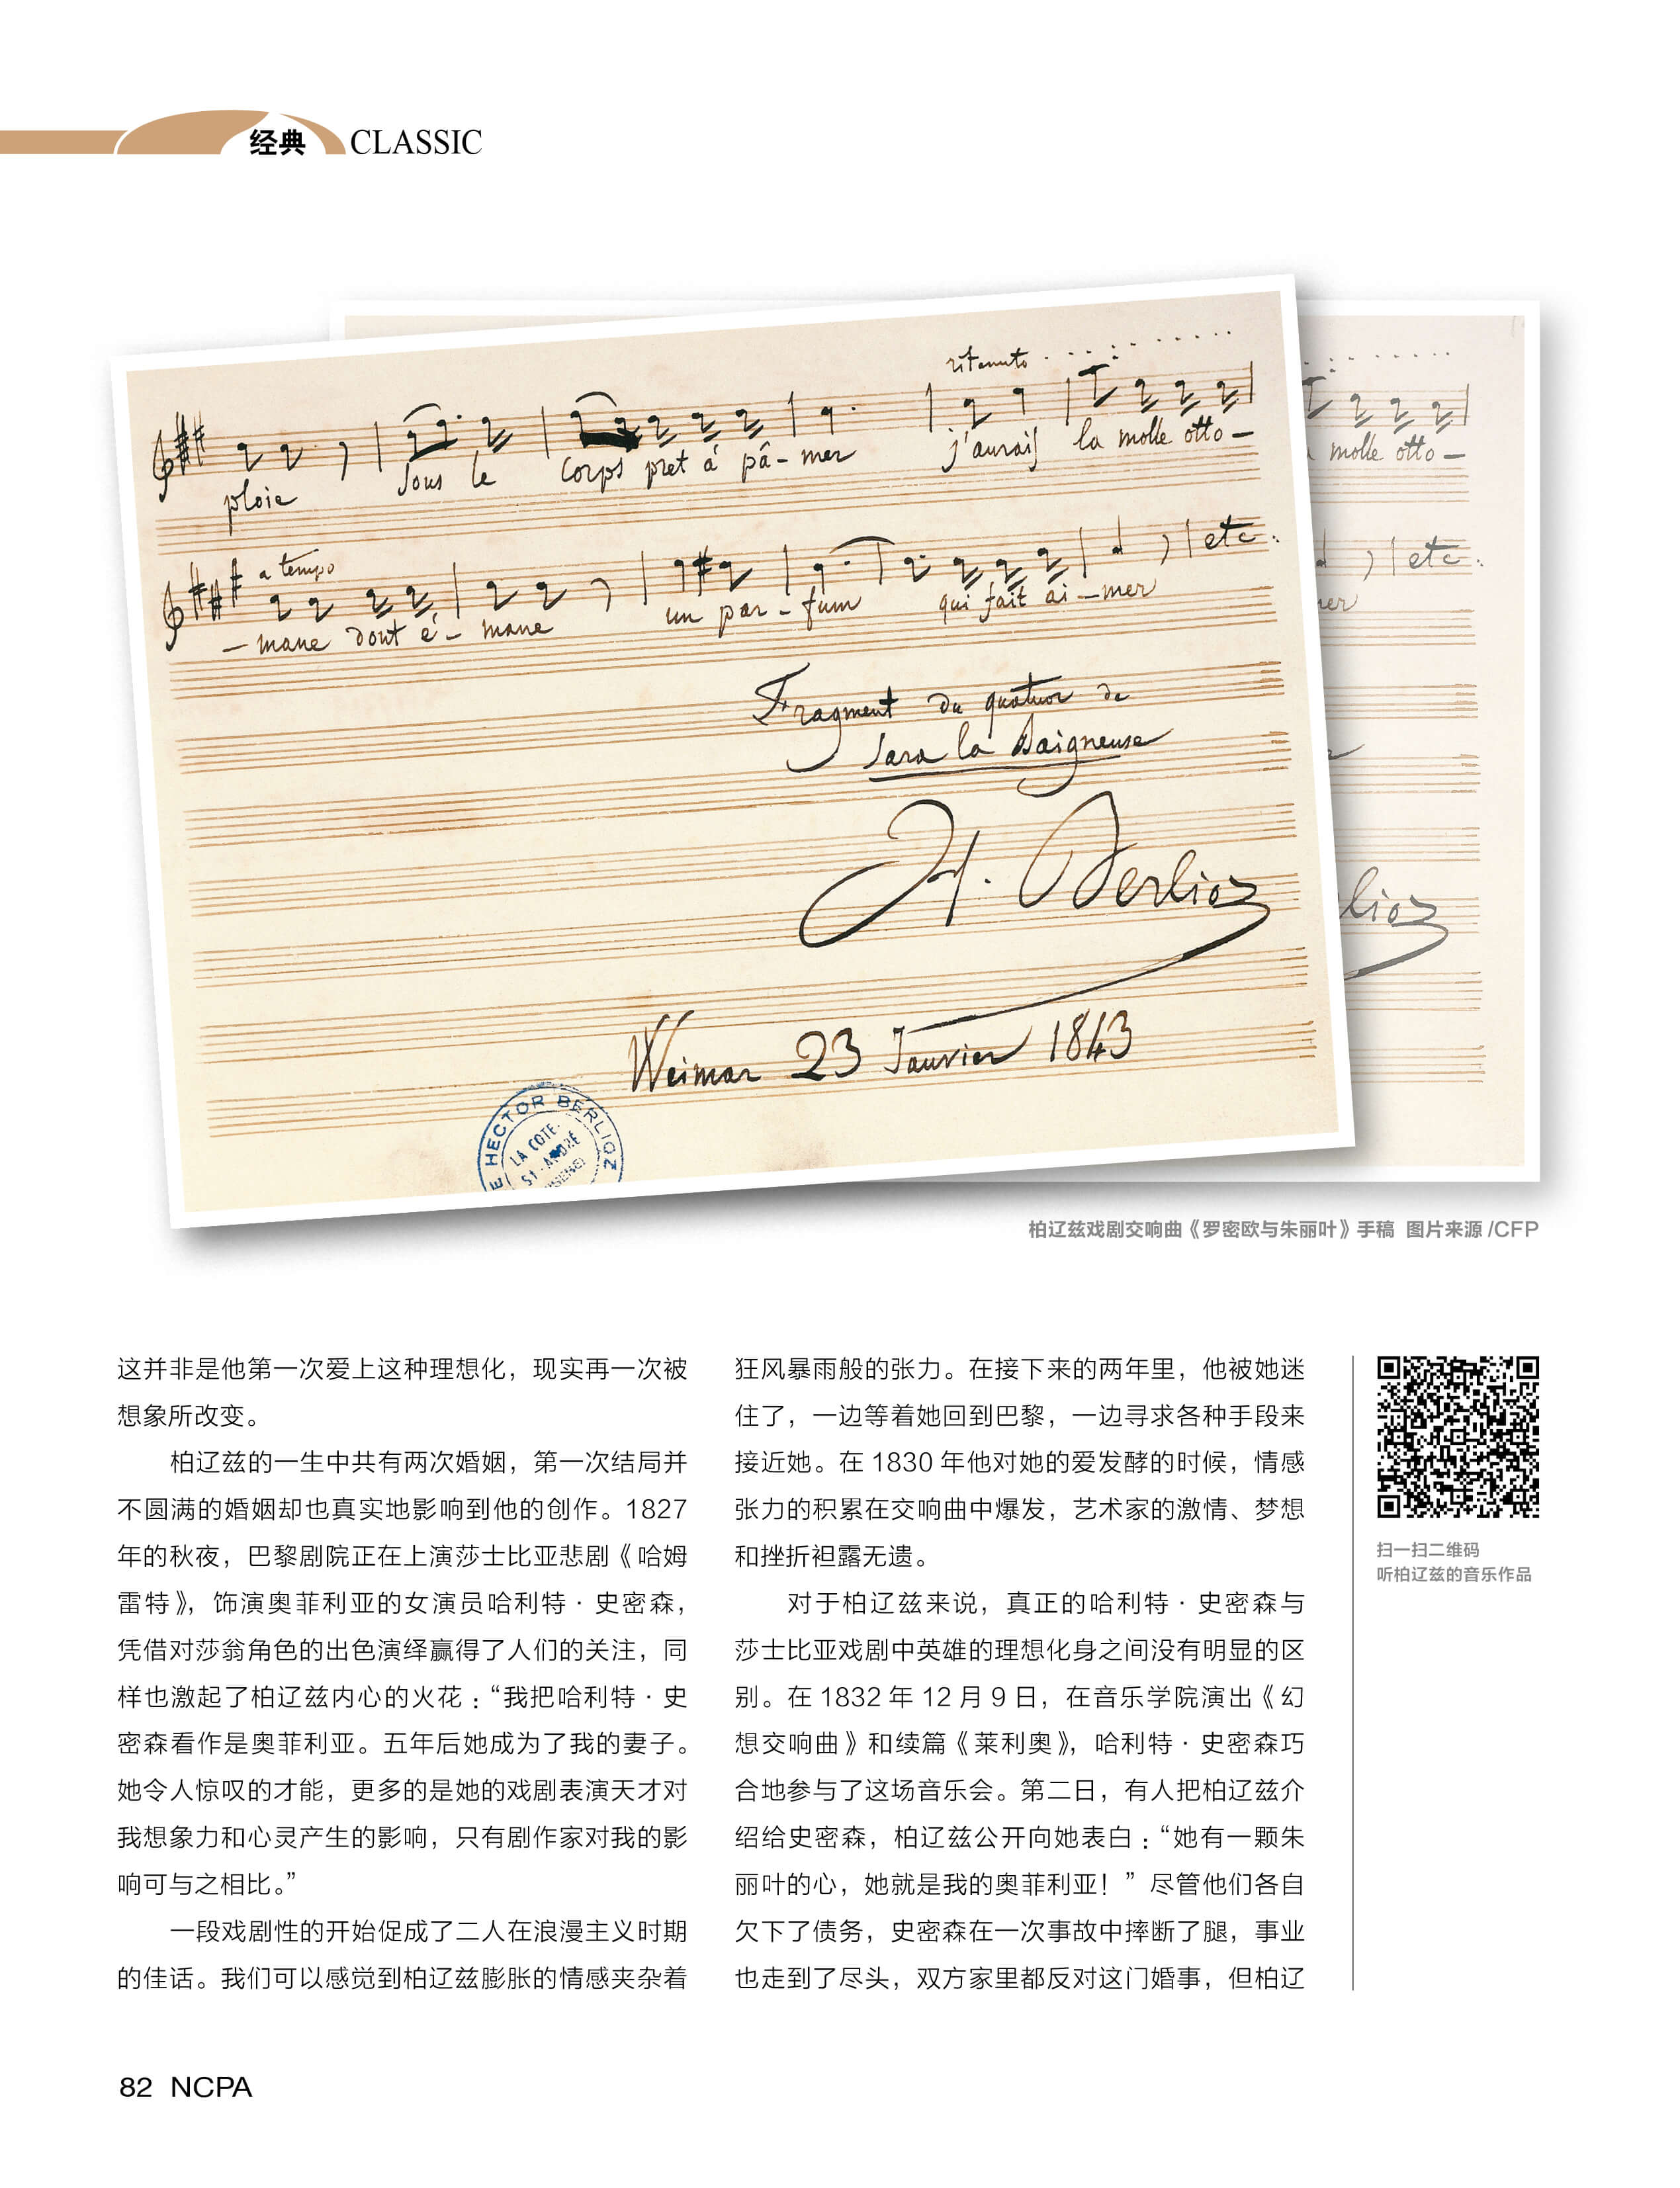 经典 CLASSIC
ritenuto
ploie sous le corps pret à pâ-mer j'aurais la molle otto-
molle otto-
a tempo
etc.
etc.
-mane dont é-mane un par-fum qui fait ai-mer
Fragment du quatuor de
Sara la Baigneuse
H. Berlioz
lioz
Weimar 23 Janvier 1843
E HECTOR BERLIOZ
LA COTE-
ST-ANDRÉ
柏辽兹戏剧交响曲《罗密欧与朱丽叶》手稿 图片来源 /CFP
这并非是他第一次爱上这种理想化，现实再一次被
想象所改变。
柏辽兹的一生中共有两次婚姻，第一次结局并
不圆满的婚姻却也真实地影响到他的创作。1827
年的秋夜，巴黎剧院正在上演莎士比亚悲剧《哈姆
雷特》，饰演奥菲利亚的女演员哈利特·史密森，
凭借对莎翁角色的出色演绎赢得了人们的关注，同
样也激起了柏辽兹内心的火花：“我把哈利特·史
密森看作是奥菲利亚。五年后她成为了我的妻子。
她令人惊叹的才能，更多的是她的戏剧表演天才对
我想象力和心灵产生的影响，只有剧作家对我的影
响可与之相比。”
一段戏剧性的开始促成了二人在浪漫主义时期
的佳话。我们可以感觉到柏辽兹膨胀的情感夹杂着
狂风暴雨般的张力。在接下来的两年里，他被她迷
住了，一边等着她回到巴黎，一边寻求各种手段来
接近她。在 1830 年他对她的爱发酵的时候，情感
张力的积累在交响曲中爆发，艺术家的激情、梦想
和挫折袒露无遗。
对于柏辽兹来说，真正的哈利特·史密森与
莎士比亚戏剧中英雄的理想化身之间没有明显的区
别。在 1832 年 12 月 9 日，在音乐学院演出《幻
想交响曲》和续篇《莱利奥》，哈利特·史密森巧
合地参与了这场音乐会。第二日，有人把柏辽兹介
绍给史密森，柏辽兹公开向她表白：“她有一颗朱
丽叶的心，她就是我的奥菲利亚！”尽管他们各自
欠下了债务，史密森在一次事故中摔断了腿，事业
也走到了尽头，双方家里都反对这门婚事，但柏辽
扫一扫二维码
听柏辽兹的音乐作品
82 NCPA